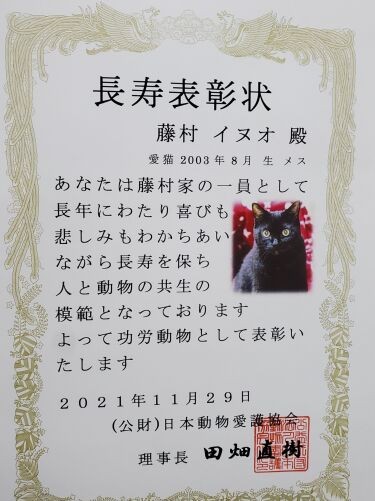 長寿表彰状
藤村 イヌオ 殿
愛猫 2003年8月 生 メス
あなたは藤村家の一員として
長年にわたり喜びも
悲しみもわかちあい
ながら長寿を保ち
人と動物の共生の
模範となっております
よって功労動物として表彰い
たします
2021年11月29日
(公財)日本動物愛護協会
理事長 田畑直樹